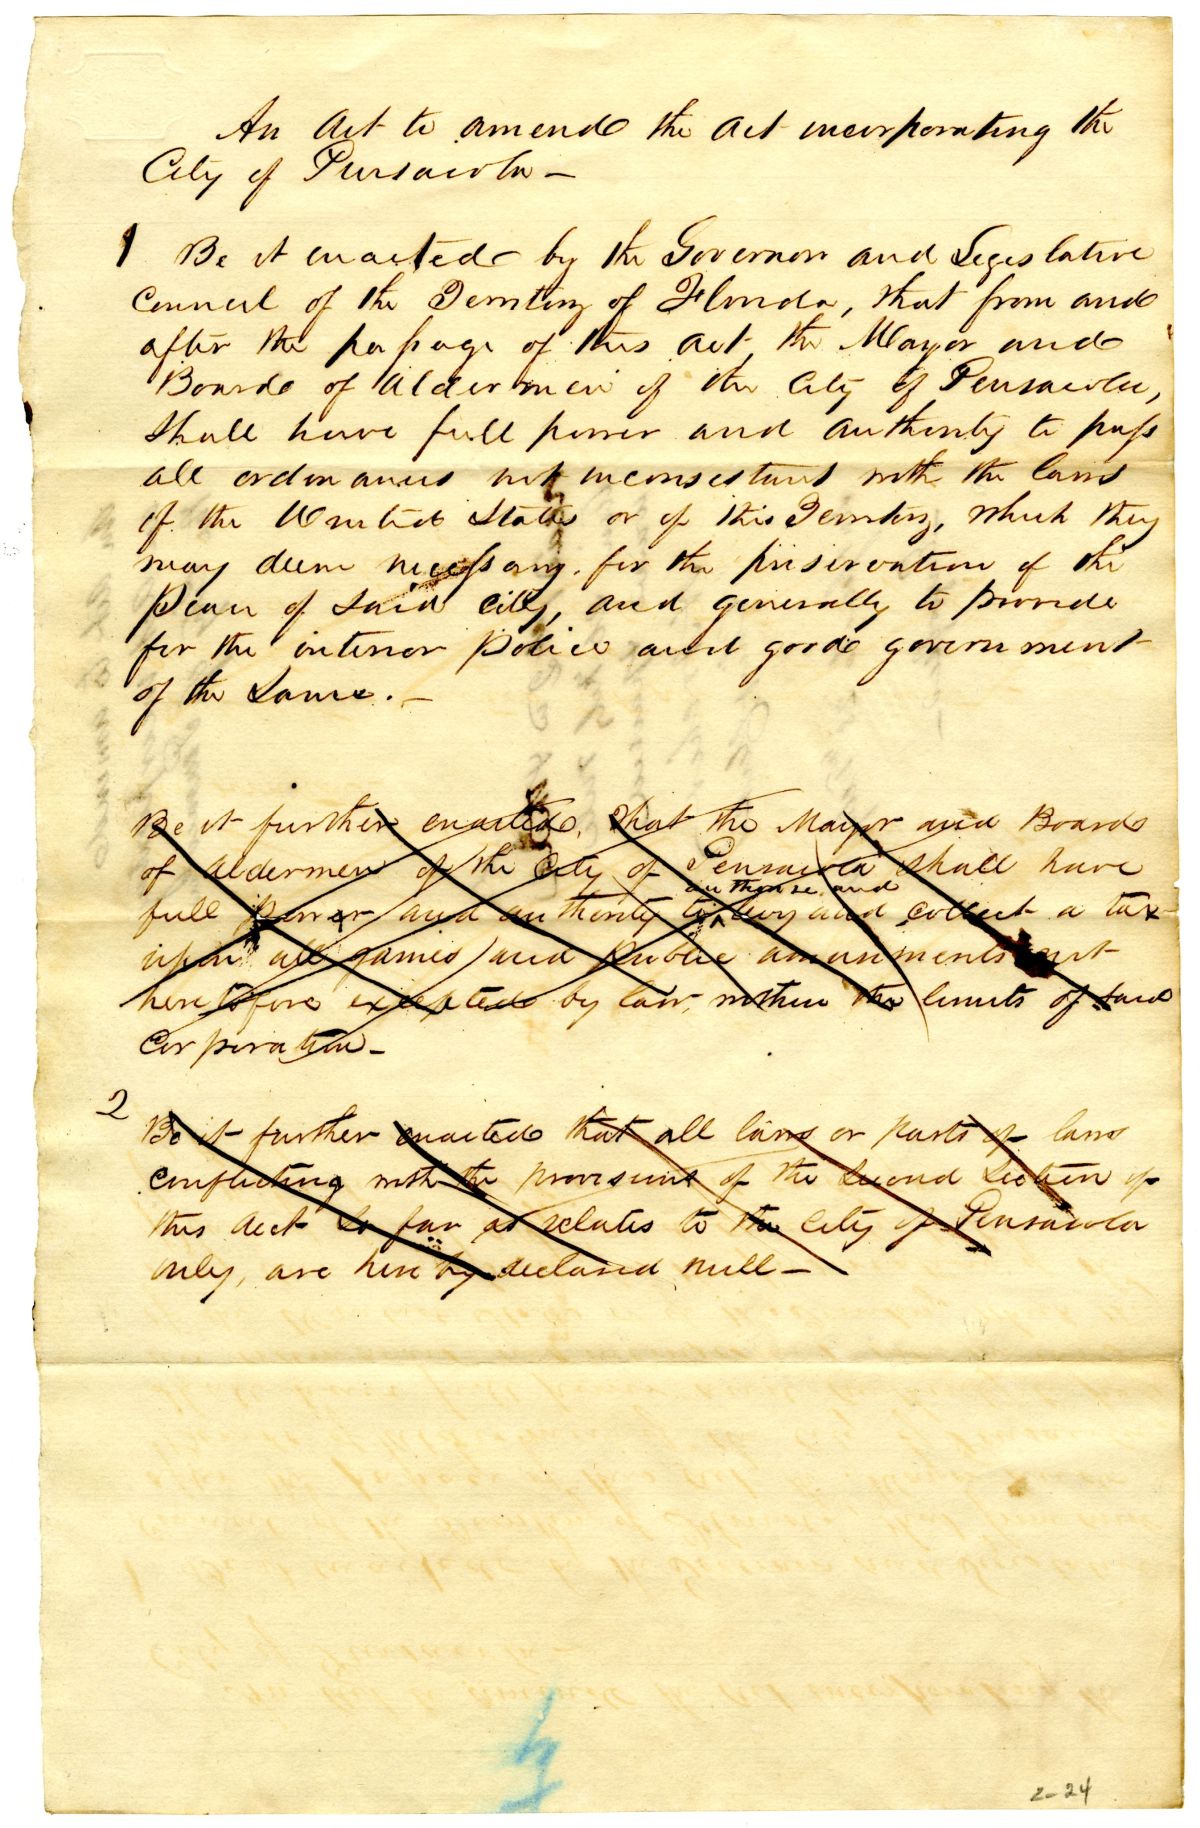 An Act to amend the Act incorporating the
City of Pensacola —
1 Be it enacted by the Governor and Legislative
Council of the Territory of Florida, that from and
after the passage of this Act, the Mayor and
Board of Aldermen of the City of Pensacola,
shall have full power and authority to pass
all ordinances not inconsistent with the laws
of the United States or of this Territory, which they
may deem necessary for the preservation of the
peace of said City, and generally to provide
for the interior Police and good government
of the same. —
Be it further enacted, that the Mayor and Board
of Aldermen of the City of Pensacola shall have
authorise and
full power and authority to levy and collect a tax
upon all games and public amusements not
heretofore excepted by law, within the limits of said
Corporation —
2
Be it further enacted that all laws or parts of laws
conflicting with the provisions of the second Section of
this Act so far as relates to the City of Pensacola
only, are hereby declared null —
2-24